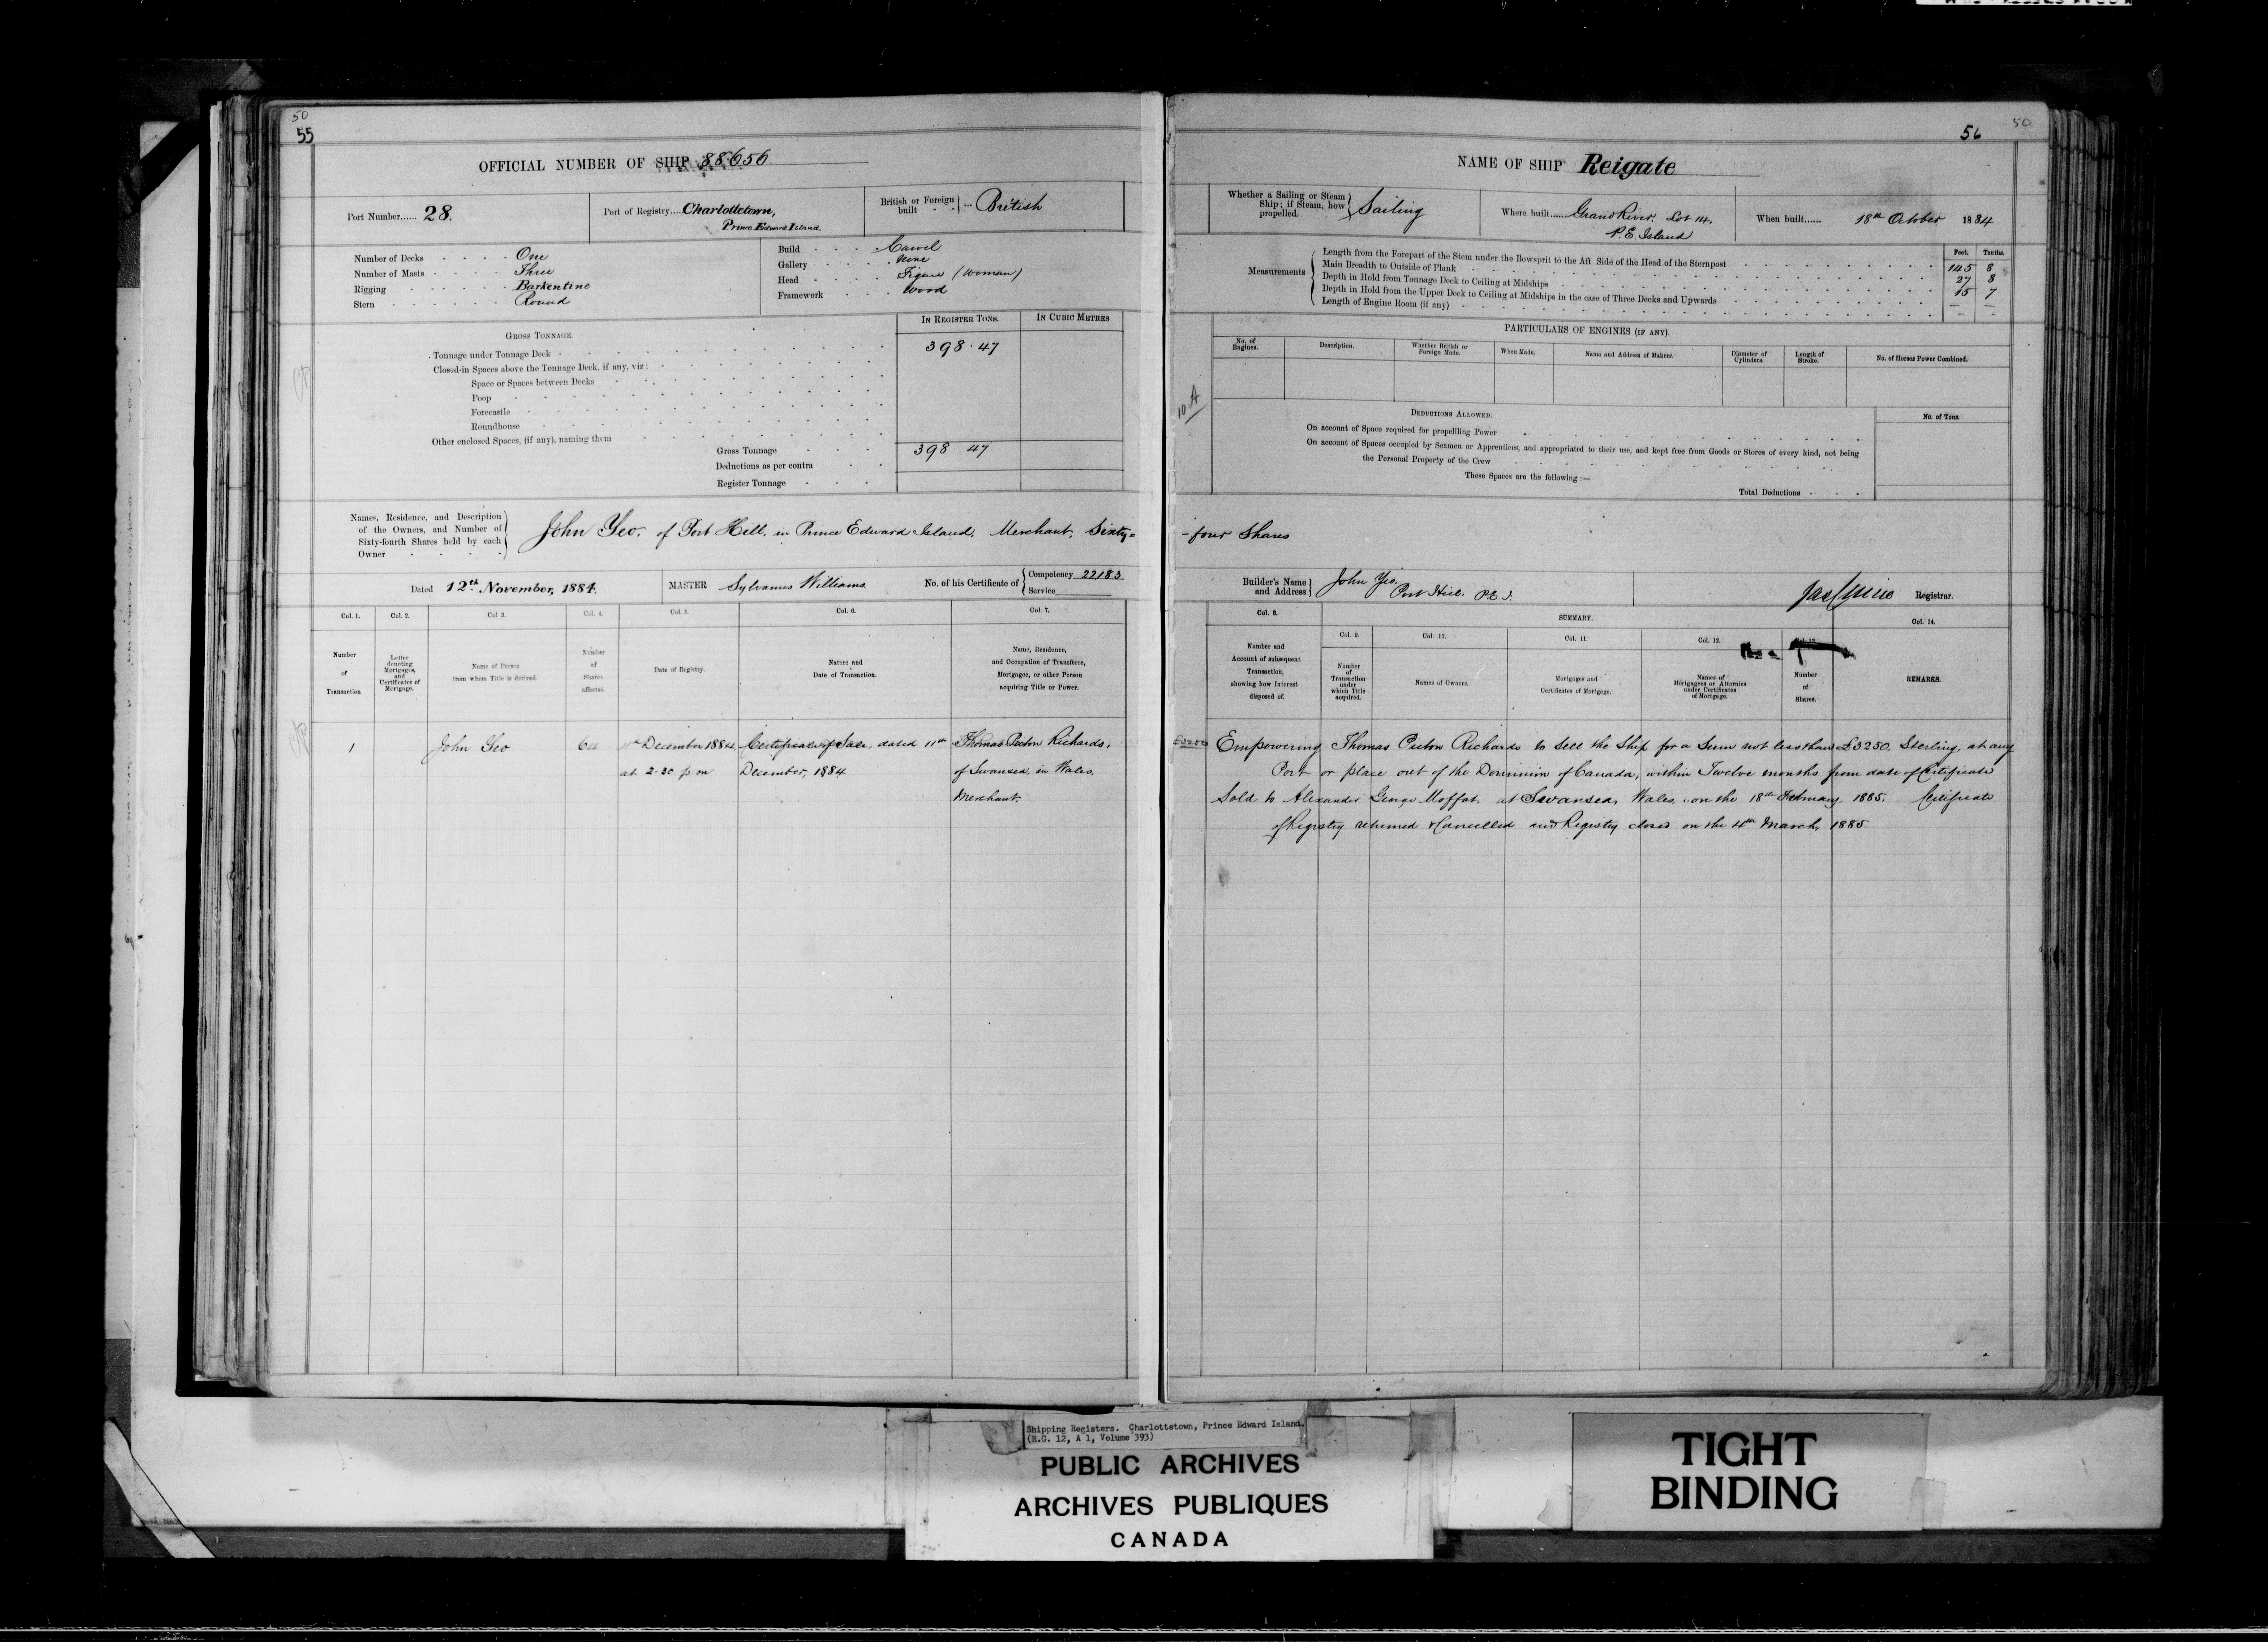 50
55
OFFICIAL NUMBER OF SHIP 88656
Port Number...... 28.
Port of Registry.... Charlottetown,
Prince Edward Island.
British or Foreign built ... British
Number of Decks One
Number of Masts Three
Rigging Barkentine
Stern Round
Build Carvel
Gallery None
Head Figure (Woman)
Framework Wood
GROSS TONNAGE.
IN REGISTER TONS.
IN CUBIC METRES
Tonnage under Tonnage Deck 398.47
Closed-in Spaces above the Tonnage Deck, if any, viz:
Space or Spaces between Decks
Poop
Forecastle
Roundhouse
Other enclosed Spaces, (if any), naming them
Gross Tonnage 398 47
Deductions as per contra
Register Tonnage
Names, Residence, and Description
of the Owners, and Number of
Sixty-fourth Shares held by each
Owner
John Yeo, of Port Hill, in Prince Edward Island, Merchant, Sixty=
Dated 12th November, 1884.
MASTER Sylvanus Williams.
No. of his Certificate of Competency 22183
Service
Col. 1.
Col. 2.
Col 3.
Col. 4.
Col. 5.
Col. 6.
Col. 7.
Number of Transaction
Letter denoting Mortgages, and Certificates of Mortgage.
Name of Person from whom Title is derived.
Number of Shares affected.
Date of Registry.
Nature and Date of Transaction.
Name, Residence, and Occupation of Transferee, Mortgagee, or other Person acquiring Title or Power.
1 John Yeo 64 11th December 1884 Certificate of Sale, dated 11th Thomas Picton Richards,
at 2-30 p m December, 1884 of Swansea, in Wales,
Merchant.
56
50
NAME OF SHIP Reigate
Whether a Sailing or Steam Ship; if Steam, how propelled. Sailing
Where built...... Grand River, Lot 14,
P.E. Island
When built...... 18th October 1884
Measurements
Feet. Tenths.
Length from the Forepart of the Stem under the Bowsprit to the Aft Side of the Head of the Sternpost 145 8
Main Breadth to Outside of Plank 27 8
Depth in Hold from Tonnage Deck to Ceiling at Midships 15 7
Depth in Hold from the Upper Deck to Ceiling at Midships in the case of Three Decks and Upwards
Length of Engine Room (if any) — —
PARTICULARS OF ENGINES (IF ANY).
No. of Engines.
Description.
Whether British or Foreign Made.
When Made.
Name and Address of Makers.
Diameter of Cylinders.
Length of Stroke.
No. of Horses Power Combined.
10 A
DEDUCTIONS ALLOWED.
No. of Tons.
On account of Space required for propellling Power
On account of Spaces occupied by Seamen or Apprentices, and appropriated to their use, and kept free from Goods or Stores of every kind, not being
the Personal Property of the Crew
These Spaces are the following:—
Total Deductions
-four Shares
Builder's Name and Address John Yeo,
Port Hill. P.E.I.
Registrar.
Col. 8.
SUMMARY.
Col. 14.
Col. 9.
Col. 10.
Col. 11.
Col. 12.
Number and Account of subsequent Transaction, showing how Interest disposed of.
Number of Transaction under which Title acquired.
Names of Owners.
Mortgages and Certificates of Mortgage.
Names of Mortgagees or Attornies under Certificates of Mortgage.
Number of Shares.
REMARKS.
£3250 Empowering Thomas Picton Richards to sell the Ship for a Sum not less than £3250, Sterling, at any
Port or place out of the Dominion of Canada, within Twelve months from date of Certificate
Sold to Alexander George Moffat, at Swansea, Wales, on the 18th February, 1885. Certificate
of Registry returned & Cancelled and Registry closed on the 4th March, 1885.
Shipping Registers. Charlottetown, Prince Edward Island.
(R.G. 12, A 1, Volume 393)
PUBLIC ARCHIVES
ARCHIVES PUBLIQUES
CANADA
TIGHT
BINDING